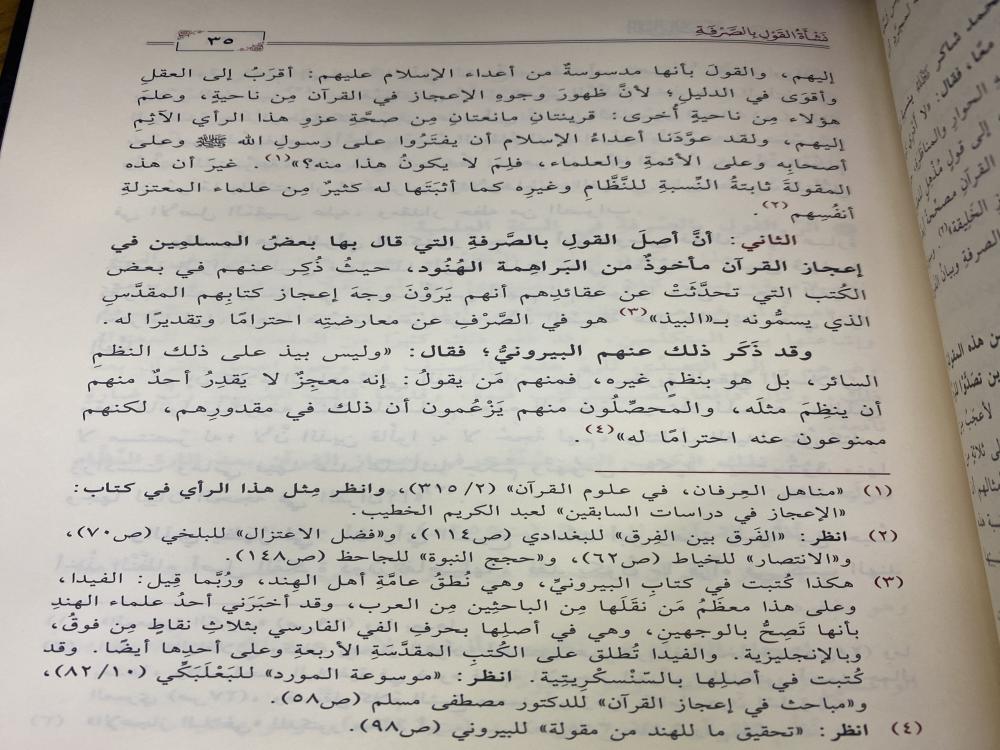 نَشْأةُ القَوْلِ بالصَّرْفَةِ
٣٥
إليهم، والقولَ بأنها مدسوسةٌ من أعداء الإسلام عليهم: أقرَبُ إلى العقلِ
وأقوَى في الدليلِ؛ لأنَّ ظهورَ وجوهِ الإعجاز في القرآن مِن ناحيةٍ، وعلمَ
هؤلاء مِن ناحيةٍ أُخرى: قرينتانِ مانعتانِ مِن صحَّةِ عزوِ هذا الرأي الآثمِ
إليهم، ولقد عوَّدَنا أعداءُ الإسلام أن يفتَرُوا على رسولِ الله ﷺ وعلى
أصحابِه وعلى الأئمةِ والعلماء، فلِمَ لا يكونُ هذا منه؟»(١). غيرَ أن هذه
المقولةَ ثابتةُ النِّسبةِ للنَّظَّامِ وغيرِه كما أثبَتَها له كثيرٌ مِن علماء المعتزلةِ
أنفُسِهم(٢).
الثاني: أنَّ أصلَ القولِ بالصَّرفةِ التي قال بها بعضُ المسلمِين في
إعجاز القرآن مأخوذٌ من البَراهِمة الهُنُود، حيثُ ذُكِر عنهم في بعض
الكُتب التي تحدَّثَتْ عن عقائدِهم أنهم يَرَوْنَ وجهَ إعجاز كتابِهم المقدَّسِ
الذي يسمُّونه بـ«البيذ»(٣) هو في الصَّرْفِ عن معارضتِه احترامًا وتقديرًا له.
وقد ذَكَر ذلك عنهم البيرونيُّ؛ فقال: «وليس بيذ على ذلك النظمِ
السائر، بل هو بنظمٍ غيره، فمنهم مَن يقولُ: إنه معجِزٌ لا يَقدِرُ أحدٌ منهم
أن ينظِمَ مثلَه، والمحصِّلُون منهم يَزْعُمون أن ذلك في مقدورِهم، لكنهم
ممنوعون عنه احترامًا له»(٤).
(١) «مناهل العِرفان، في علوم القرآن» (٢/ ٣١٥)، وانظر مِثل هذا الرأي في كتاب:
«الإعجاز في دراسات السابقين» لعبد الكريم الخطيب.
(٢) انظر: «الفَرق بين الفِرق» للبغدادي (ص١١٤)، و«فضل الاعتزال» للبلخي (ص٧٠)،
و«الانتصار» للخياط (ص٦٢)، و«حجج النبوة» للجاحظ (ص١٤٨).
(٣) هكذا كُتبت في كتابِ البيرونيِّ، وهي نُطقُ عامَّةِ أهل الهِند، ورُبَّما قِيل: الفيدا،
وعلى هذا معظَمُ مَن نقَلَها مِن الباحثِين مِن العرب، وقد أخبَرَني أحدُ علماء الهندِ
بأنها تَصِحُّ بالوجهينِ، وهي في أصلِها بحرفِ الفي الفارسي بثلاثِ نقاطٍ مِن فوقُ،
وبالإنجليزية. والفيدا تُطلق على الكُتبِ المقدَّسَةِ الأربعةِ وعلى أحدِها أيضًا. وقد
كُتبت في أصلِها بالسَّنْسكرِيتِية. انظر: «موسوعة المورد» للبَعْلَبَكِّي (١٠/ ٨٢)،
و«مباحث في إعجاز القرآن» للدكتور مصطفى مسلم (ص٥٨).
(٤) انظر: «تحقيق ما للهند من مقولة» للبيروني (ص٩٨).